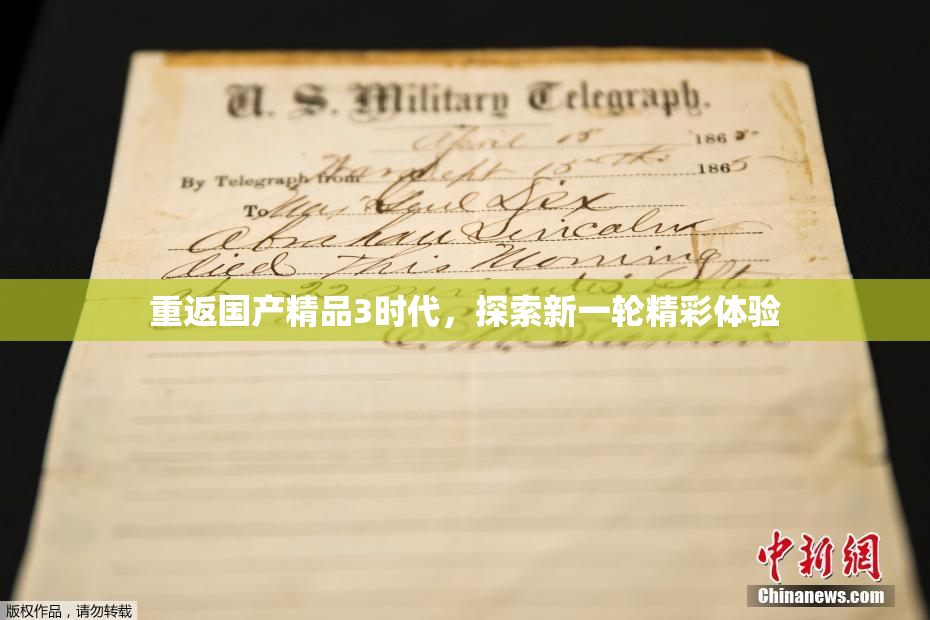 U. S. Military Telegraph.
April 15 1865
By Telegraph from War Dept 15th 1865
To Maj Genl Dix
Abraham Lincoln
died This Morning
at 22 minutes after
重返国产精品3时代，探索新一轮精彩体验
E. M. Stanton
中新网
Chinanews.com
版权作品，请勿转载